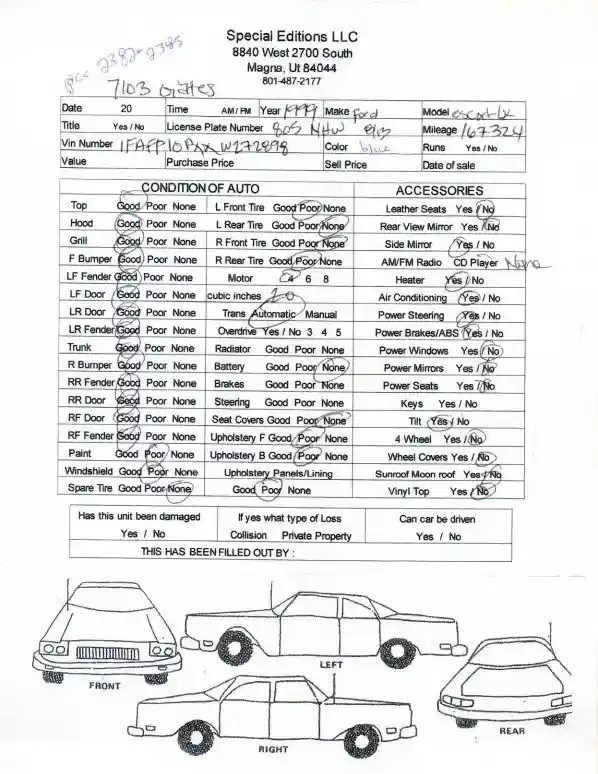 Special Editions LLC
8840 West 2700 South
Magna, Ut 84044
801-487-2177
pcc 2382-2385
7103 Gates
Date 20 Time AM / PM Year 1999 Make Ford Model escort lx
Title Yes / No License Plate Number 805 NHW 8/13 Mileage 167324
Vin Number 1FAFP10PXXW272898 Color blue Runs Yes / No
Value Purchase Price Sell Price Date of sale
CONDITION OF AUTO ACCESSORIES
Top Good Poor None L Front Tire Good Poor None Leather Seats Yes / No
Hood Good Poor None L Rear Tire Good Poor None Rear View Mirror Yes / No
Grill Good Poor None R Front Tire Good Poor None Side Mirror Yes / No
F Bumper Good Poor None R Rear Tire Good Poor None AM/FM Radio CD Player None
LF Fender Good Poor None Motor 4 6 8 Heater Yes / No
LF Door Good Poor None cubic inches 2.0 Air Conditioning Yes / No
LR Door Good Poor None Trans Automatic Manual Power Steering Yes / No
LR Fender Good Poor None Overdrive Yes / No 3 4 5 Power Brakes/ABS Yes / No
Trunk Good Poor None Radiator Good Poor None Power Windows Yes / No
R Bumper Good Poor None Battery Good Poor None Power Mirrors Yes / No
RR Fender Good Poor None Brakes Good Poor None Power Seats Yes / No
RR Door Good Poor None Steering Good Poor None Keys Yes / No
RF Door Good Poor None Seat Covers Good Poor None Tilt Yes / No
RF Fender Good Poor None Upholstery F Good Poor None 4 Wheel Yes / No
Paint Good Poor None Upholstery B Good Poor None Wheel Covers Yes / No
Windshield Good Poor None Upholstery Panels/Lining Sunroof Moon roof Yes / No
Spare Tire Good Poor None Good Poor None Vinyl Top Yes / No
Has this unit been damaged If yes what type of Loss Can car be driven
Yes / No Collision Private Property Yes / No
THIS HAS BEEN FILLED OUT BY :
LEFT
FRONT
REAR
RIGHT